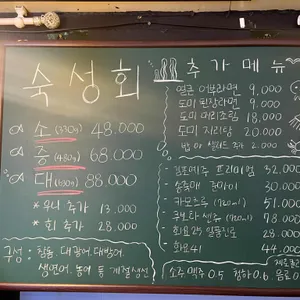 숙성회
소 (330g) 48.000
중 (480g) 68.000
대 (630g) 88.000
* 우니 추가 13.000
* 회 추가 28.000
구성 : 참돔, 대광어, 대방어
생연어, 농어 등 계절생선
추가메뉴
얼큰 어부라면 9.000
도미 된장라면 9.000
도미 머리조림 18.000
도미 지리탕 20.000
밥 or 추가 2.000
프리미엄 32.000
30.000
카모츠루 (720ml) 51.000
쿠보타 센쥬 (720ml) 78.000
화요 25 28.000
화요 41 44.000
소주 맥주 0.5 청하 0.6 음료